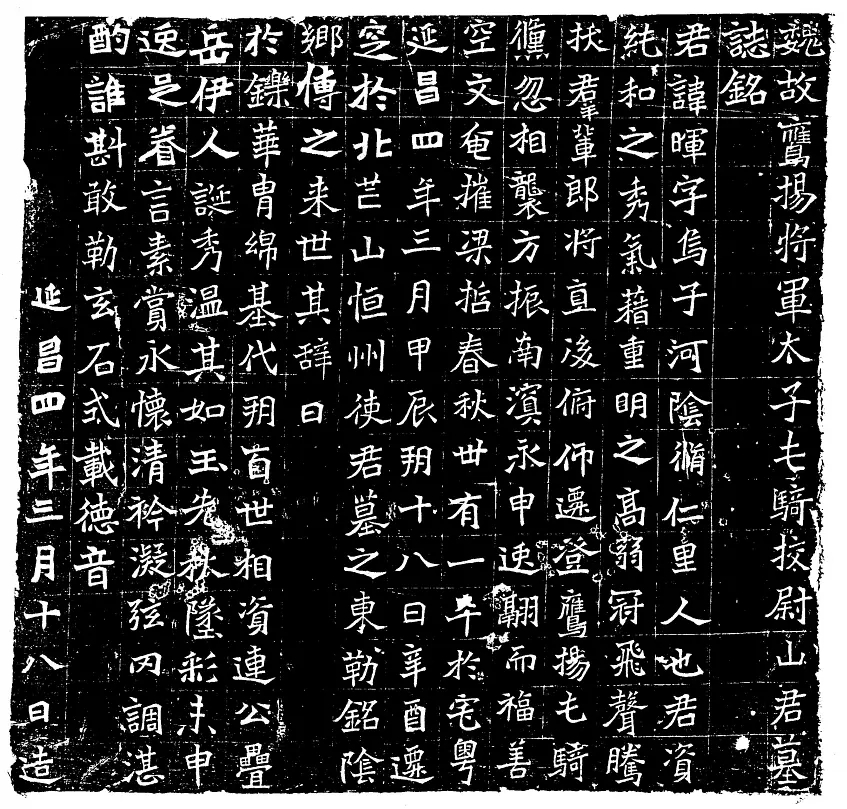 魏故鷹揚將軍太子屯騎校尉山君墓
誌銘
君諱暉字烏子河陰脩仁里人也君資
純和之秀氣藉重明之高弱冠飛聲騰
扶羣輩郎將直後俯仰遷登鷹揚屯騎
儻忽相襲方振南溟永申逸翮而福善
空文奄摧梁哲春秋卅有一卒於宅粵
延昌四年三月甲辰朔十八日辛酉遷
窆於北芒山恒州使君墓之東勒銘陰
鄉傳之来世其辞曰
於鑠華胄綿基代朔百世相資連公疊
岳伊人誕秀温其如玉先秋墜彩未申
逸足眷言素賞永懷清衿凝弦罔調湛
酌誰斟敢勒玄石式載德音
延昌四年三月十八日造